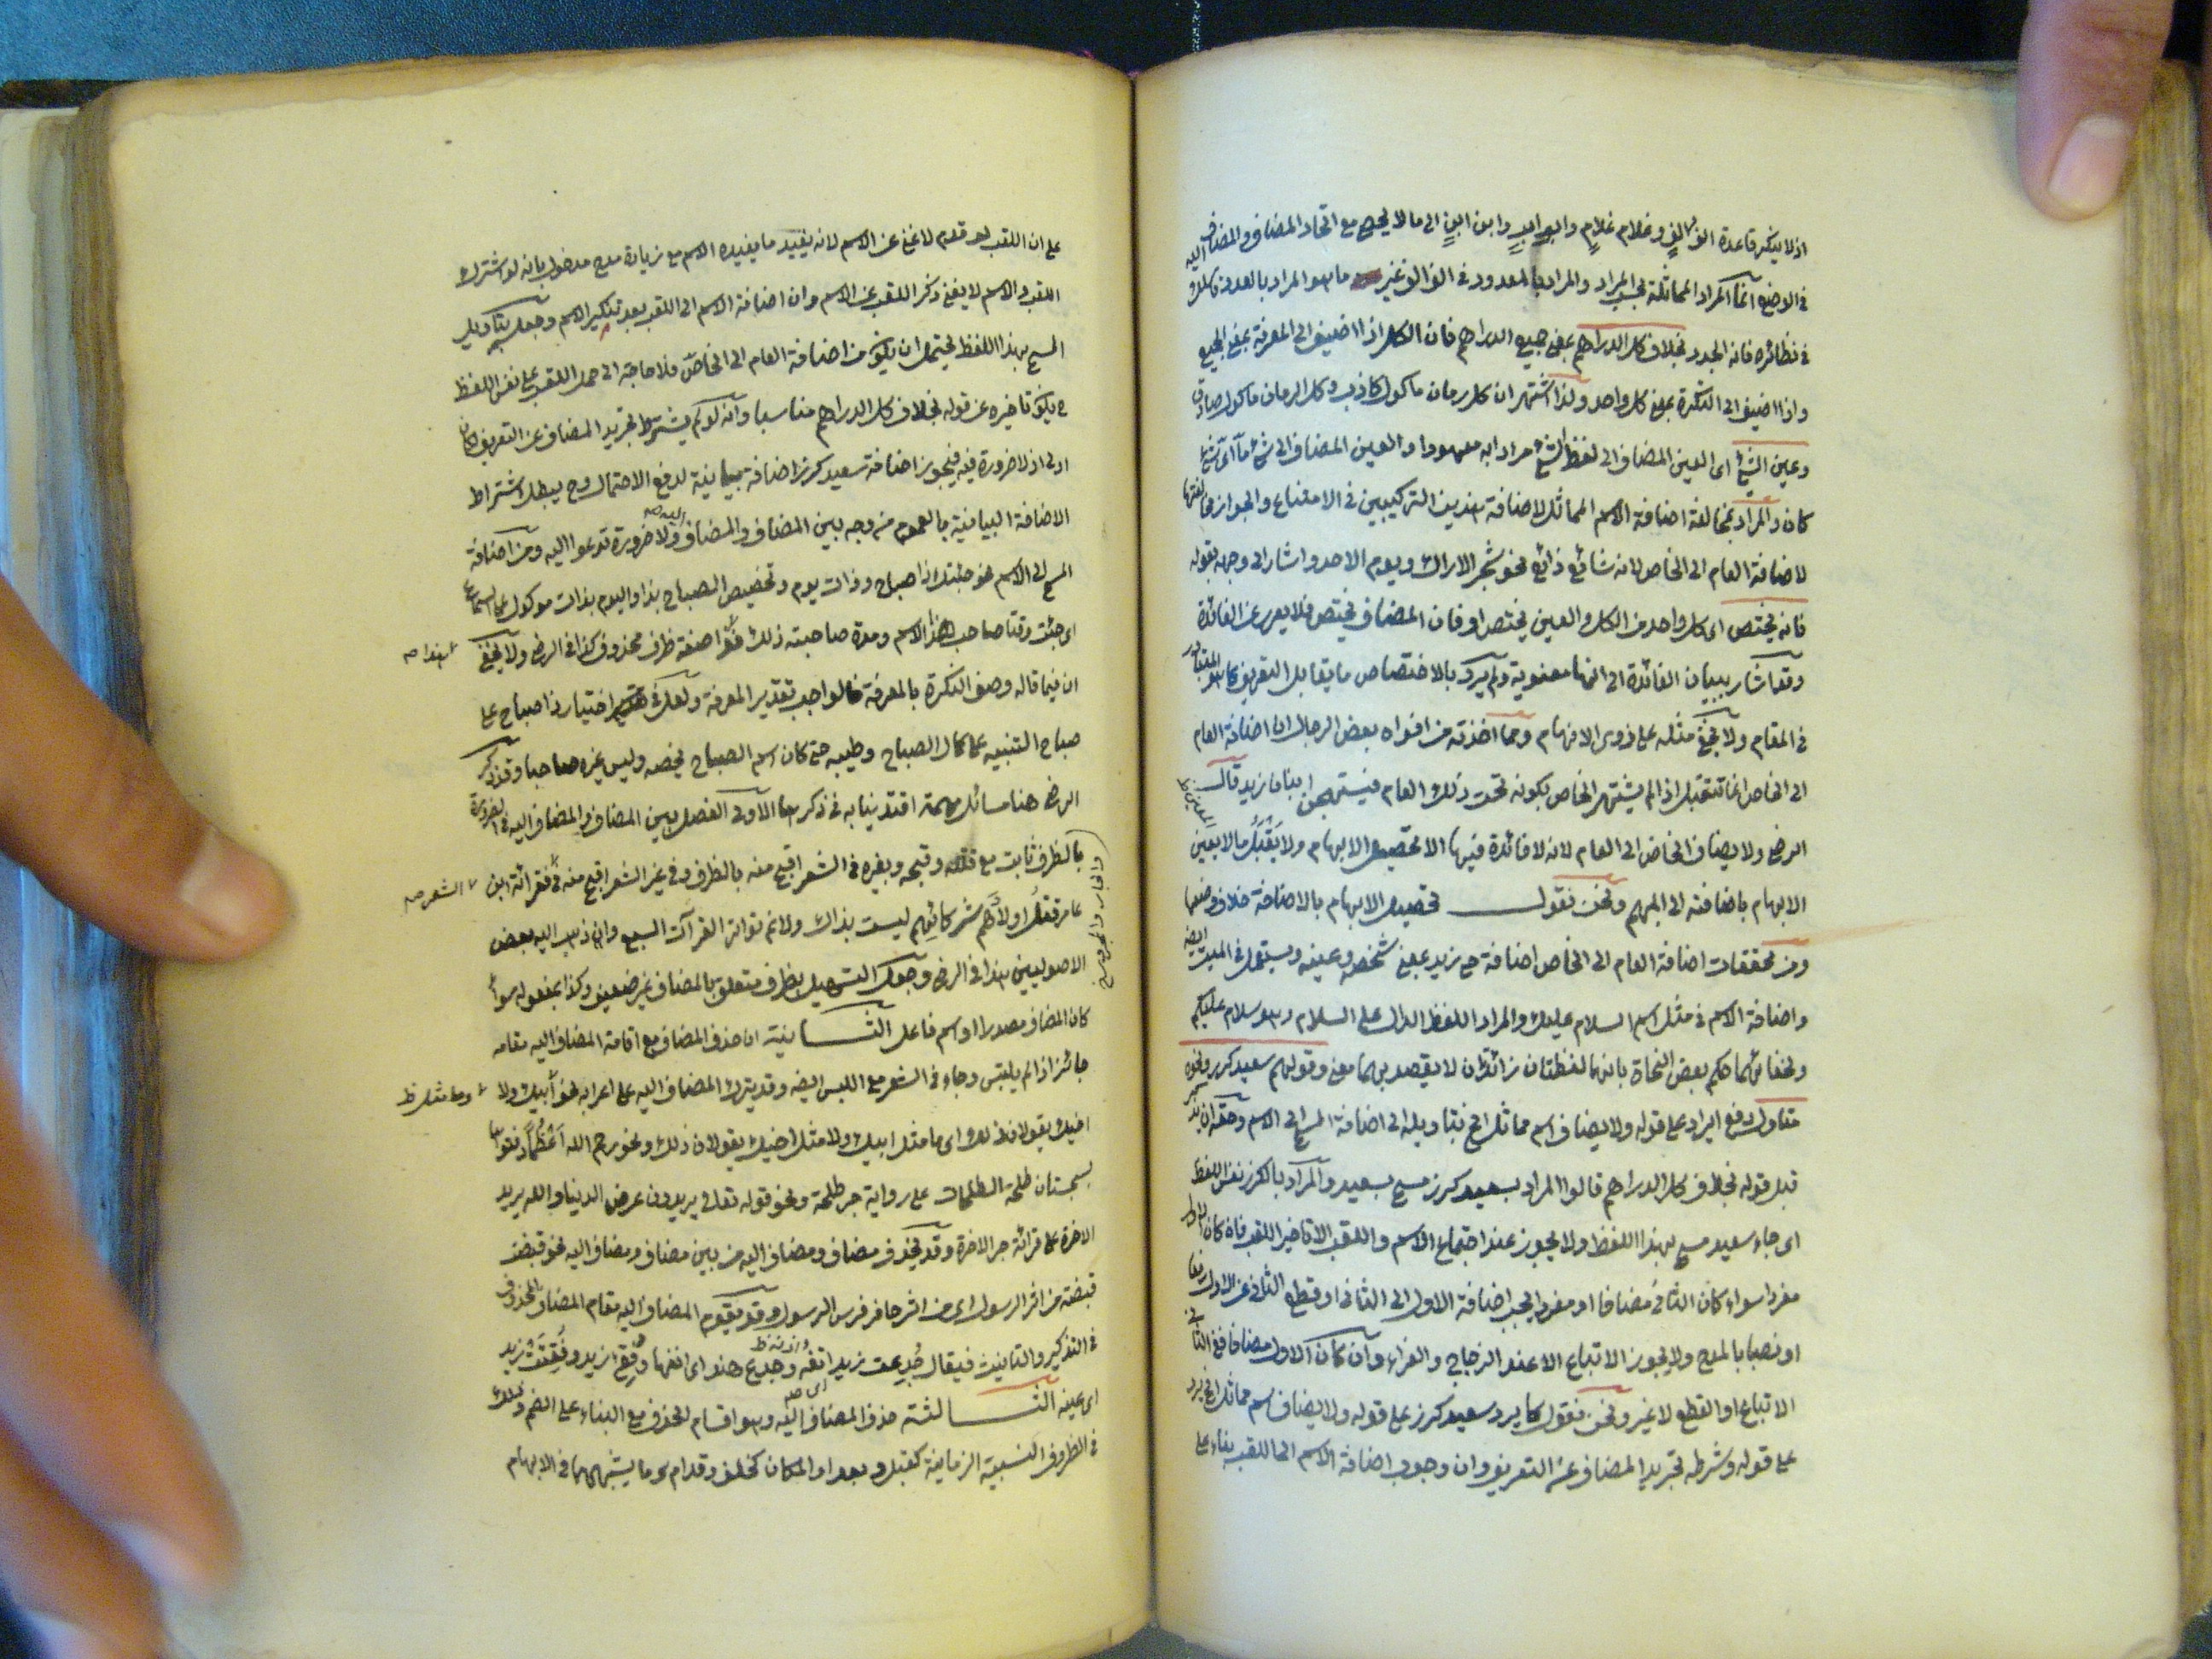 اذ لا ينكر قاعدة الف الف وغلام غلام واب اب وابن ابن الى ما لا يحصى مع اتحاد المضاف والمضاف اليه
في الوضع انما المراد المماثلة بحسب المراد والمراد بالمعدود في الف الف غير ما هو المراد بالعدد
في نظائره فانه المجدد بخلاف كل الدراهم بمعنى جميع الدراهم فان الكل اذا اضيف الى المعرفة بمعنى الجميع
واذا اضيف الى النكرة بمعنى كل واحد ولذا اشتهر ان كل رمان ماكول كاذب وكل الرمان ماكول صادق
وعين الشئ اى العين المضاف الى لفظ الشئ مرادا به معهودا والعين المضاف الى شئ ما اى شئ
كان والمراد بمخالفة اضافة الاسم المماثل لاضافة هذين التركيبين في الامتناع والجواز مخالفتها
لاضافة العام الى الخاص لانه شائع ذائع نحو شجر الاراك ويوم الاحد واشار الى وجهه بقوله
فانه يختص اى كل واحد من الكل والعين يختص او فان المضاف يختص فلا يعرى عن الفائدة
وقد اشار ببيان الفائدة الى انها معنوية ولم يرد بالاختصاص ما يقابل التعريف كما هو المتبادر
في المقام ولا يخفى مثله على ذوى الافهام ومما اخذته من افواه بعض الرجال ان اضافة العام
الى الخاص انما تتقبل اذا لم يشتهر الخاص بكونه تحت ذلك العام فيستهجن انسان زيد قال
الرضى ولا يضاف الخاص الى العام لانه لا فائدة فيها الا تحصيل الابهام ولا يقبل مالا يعين
الابهام باضافته الى المبهم ونحن نقول تحصيل الابهام بالاضافة خلاف وضعها
ومن محققات اضافة العام الى الخاص اضافة حى زيد بمعنى شخصه وعينه ويستعمل في الميت ايضا
واضافة الاسم في مثل اسم السلام عليك والمراد اللفظ الدال على السلام وهو سلام عليكم
ولخفائهما حكم بعض النحاة بانهما لفظتان زائدتان لا يقصد بهما معنى وقولهم سعيد كرز ونحوه
متاول دفع ايراد على قوله ولا يضاف اسم مماثل الخ بتاويله الى اضافة المسمى الى الاسم وحقه ان يذكر
قبل قوله بخلاف كل الدراهم قالوا المراد بسعيد كرز مسمى بسعيد والمراد بالكرز نفس اللفظ
اى جاء سعيد مسمى بهذا اللفظ ولا يجوز عند اجتماع الاسم واللقب الا تاخير اللقب فان كان الاول
مفردا سواء كان الثاني مضافا او مفردا يجب اضافة الاول الى الثاني او قطع الثاني عن الاول رفعا
او نصبا بالمدح ولا يجوز الاتباع الا عند الزجاج والفراء وان كان الاول مضافا ففي الثاني
الاتباع او القطع لا غير ونحن نقول كما يرد سعيد كرز على قوله ولا يضاف اسم مماثل الخ يرد
على قوله وشرطه تجريد المضاف عن التعريف وان وجوب اضافة الاسم الى اللقب بناء على
على ان اللقب لو قدم لاغنى عن الاسم لانه يفيد ما يفيده الاسم مع زيادة مدح مدخول بانه لو اشترك
اللقب والاسم لا يغنى ذكر اللقب عن الاسم وان اضافة الاسم الى اللقب بعد تنكير الاسم وجعله بتاويل
المسمى بهذا اللفظ يحتمل ان يكون من اضافة العام الى الخاص فلا حاجة الى حمل اللقب على نفس اللفظ
فيكون تاخيره عن قوله بخلاف كل الدراهم مناسبا وانه لو لم يشترط تجريد المضاف عن التعريف كان
اولى اذ لا ضرورة فيه فيجوز اضافة سعيد كرز اضافة بيانية لدفع الاحتمال وح يبطل اشتراط
الاضافة البيانية بالعموم من وجه بين المضاف والمضاف اليه ولا ضرورة تدعوا اليه ومن اضافة
المسمى الى الاسم نحو جئتك ذا صباح وذات يوم وتخصيص الصباح بذا واليوم بذات موكول على السماع
اى جئت وقتا صاحب هذا الاسم ومدة صاحبته ذلك صفة ظرف محذوف كذا في الرضى ولا يخفى
ان فيما قاله وصف النكرة بالمعرفة فالواجب تقدير المعرفة ولعل في اختيار ذا صباح على
صباح التنبيه على كمال الصباح وطيبه حتى كان اسم الصباح يخصه وليس غيره صاحبا وقد ذكر
الرضى هنا مسائل مهمة اقتدينا به في ذكرها الاولى الفصل بين المضاف والمضاف اليه في الضرورة
بالظرف ثابت مع قلته وقبحه وبغيره في الشعر اقبح منه بالظرف وفي غير الشعر اقبح منه في الشعر فقرائة ابن
عامر قتل اولادهم شركائهم ليست بذاك ولا نم تواتر القرآت السبع وان ذهب اليه بعض
الاصوليين هذا في الرضى وجعل التسهيل بظرف متعلق بالمضاف غير ضعيف وكذا بمفعوله سواء
كان المضاف مصدرا او اسم فاعل الثانية ان حذف المضاف مع اقامة المضاف اليه مقامه
جائز اذا لم يلتبس وجاء في الشعر مع اللبس ايضا وقد يترك المضاف اليه على اعرابه نحو ما مثل ابيك ولا
اخيك يقولان ذلك اى ما مثل ابيك ولا مثل اخيك يقولان ذلك ونحو رحم الله اعظما دفنوها
بسجستان طلحة الطلحات على رواية جر طلحة ونحو قوله تعالى يريدون عرض الدنيا والله يريد
الاخرة على قرائة جر الاخرة وقد يحذف مضاف ومضاف اليه من بين مضاف ومضاف اليه نحو قبضت
قبضة من اثر الرسول اى من اثر حافر فرس الرسول وقد يقوم المضاف اليه مقام المضاف المحذوف
في التذكير والتانيث فيقال جدعت زيد اى انفه وجدع هند اى انفها وفقئ زيد وفقئت زيد
اى عينه الثالثة حذف المضاف اليه وهو اقسام الحذف مع البناء على الضم وذلك
في الظروف النسبية الزمانية كقبل وبعد او المكان كخلف وقدام وما يشبهها في الابهام